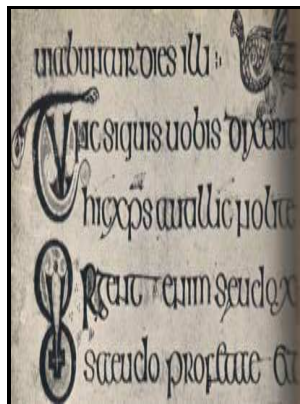 uiabuntur dies illi :
Tunc siquis uobis dixerit
hic xps aut illic nolite
Surgent enim seudo x
seudo profetae